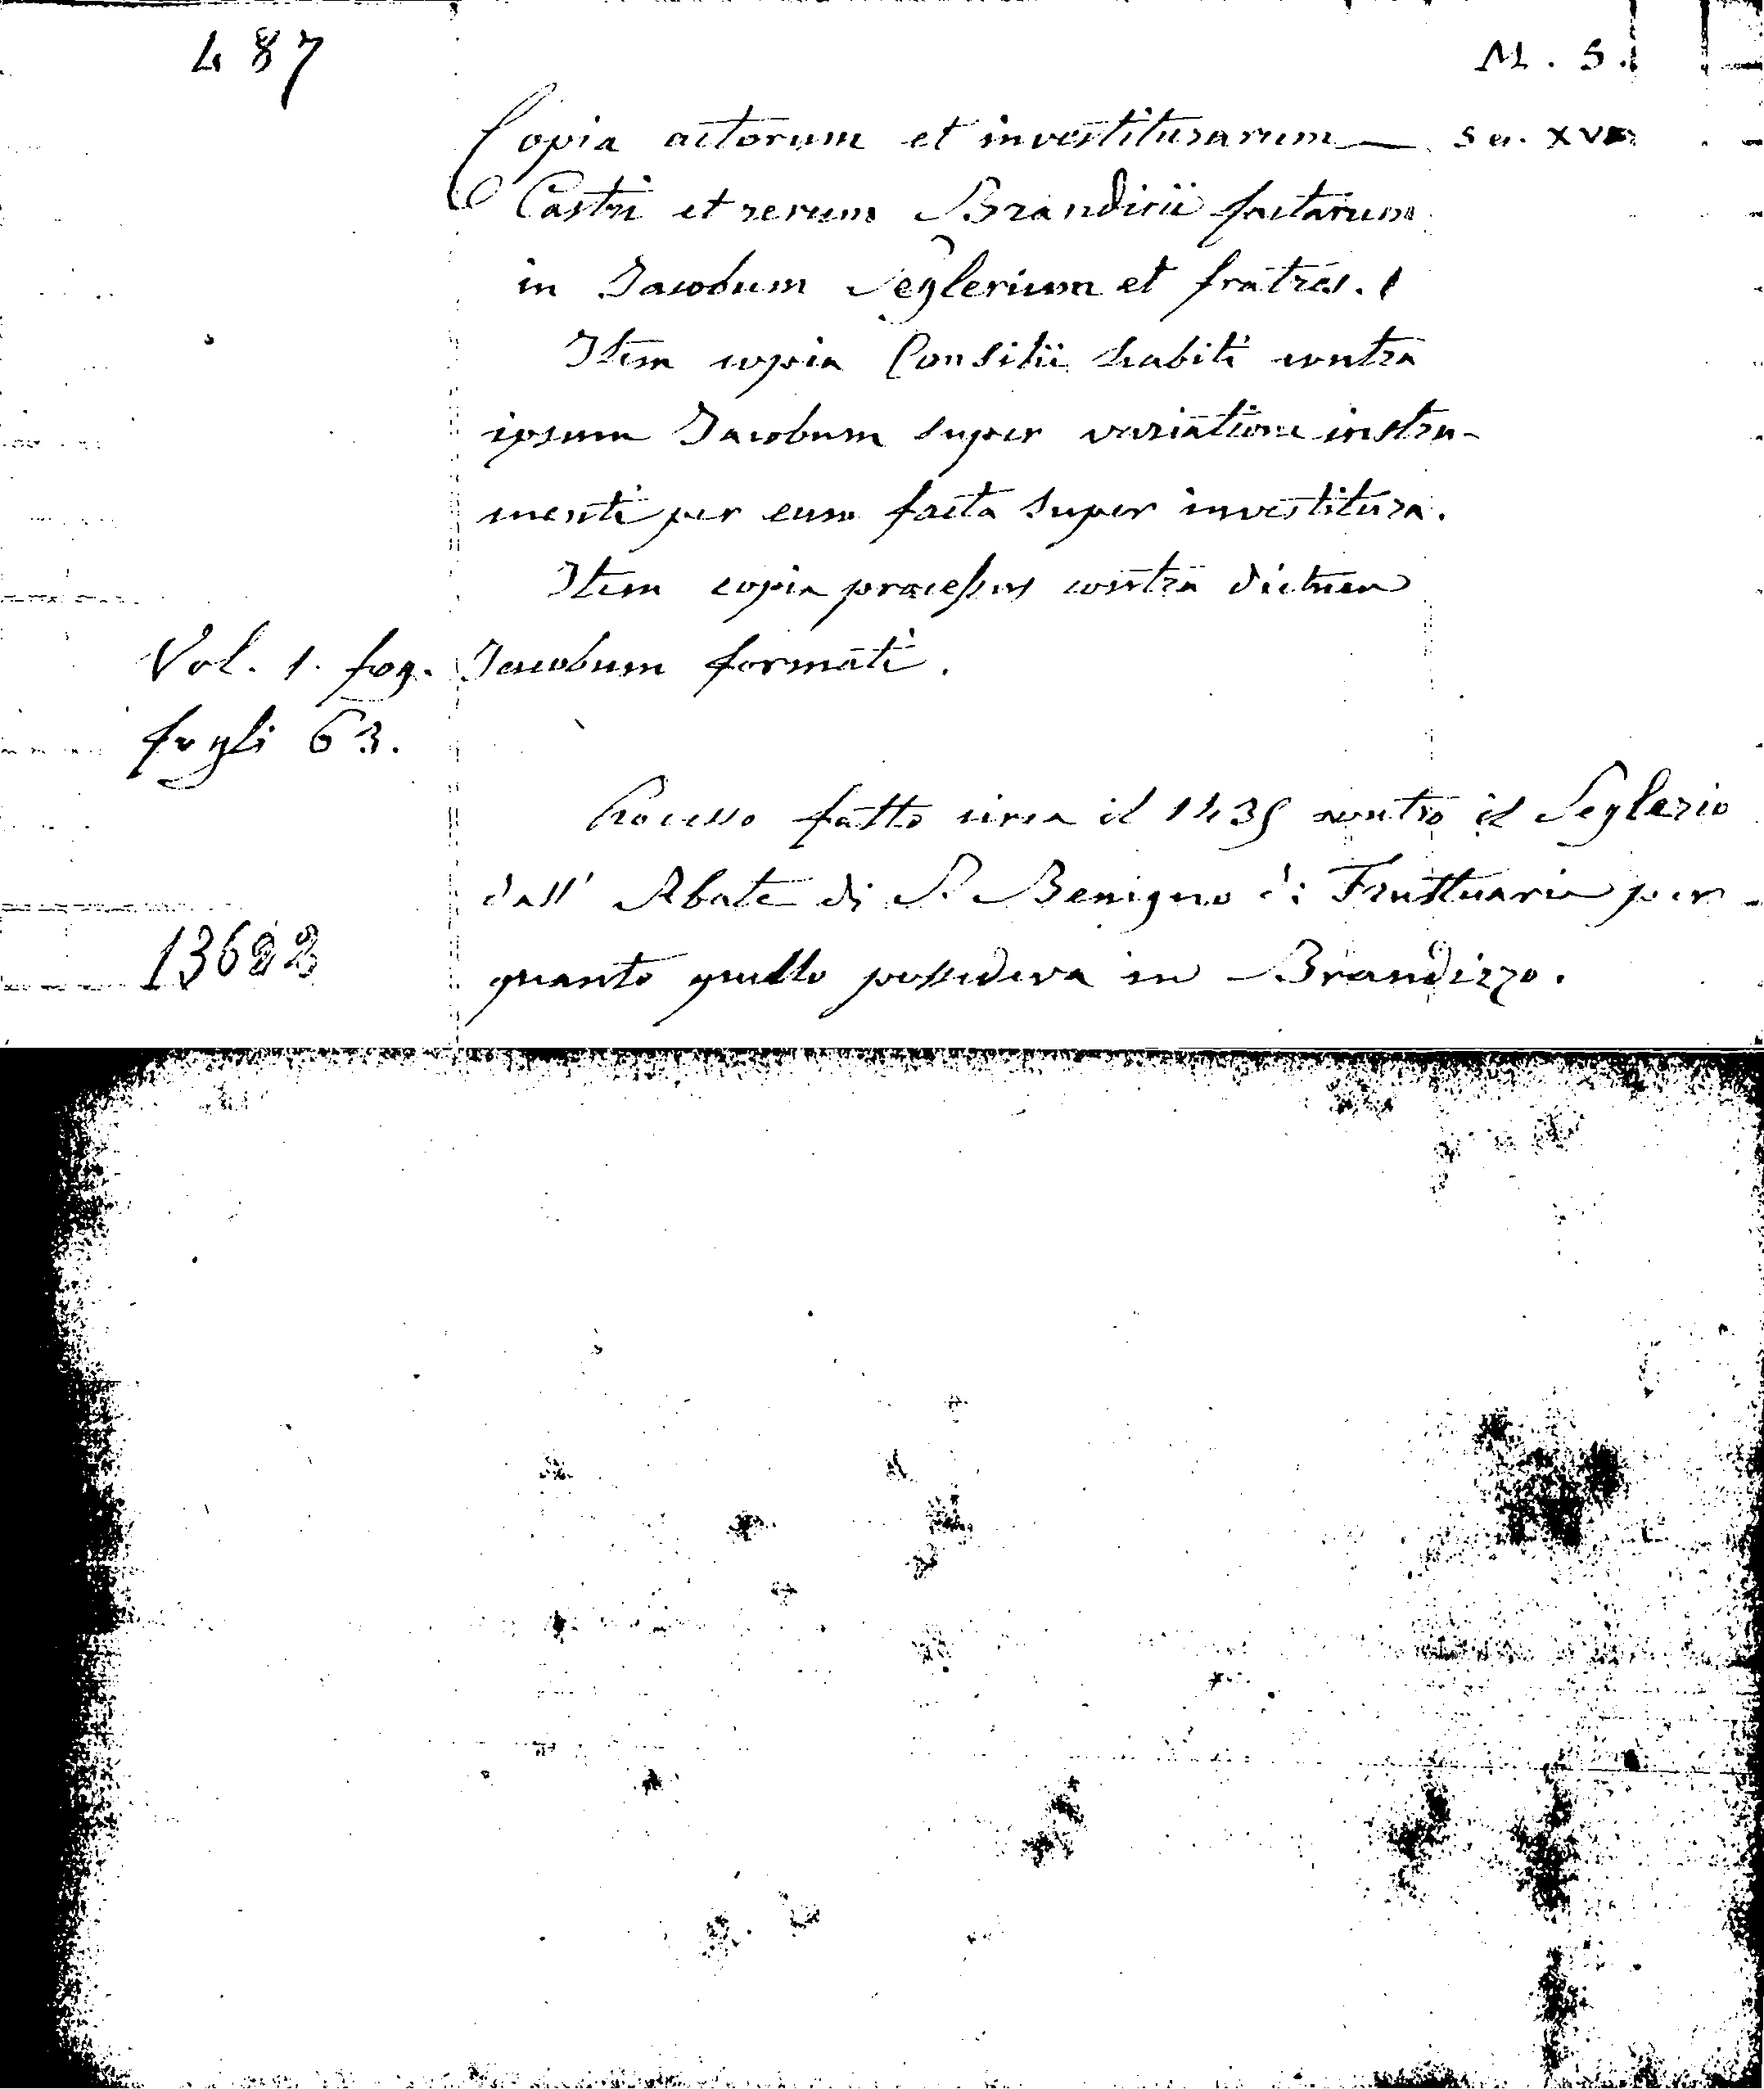 487
M. S.
Copia actorum et investiturarum — Sec. XV
Castri et rerum Brandicii factarum
in Jacobum Seglerium et fratres.
Item copia Consilii habiti contra
ipsum Jacobum super variatione instru-
menti per eum facta super investitura.
Item copia processus contra dictum
Vol. 1. fog. Jacobum formati.
fogli 63.
Processo fatto circa il 1435 contro il Seglerio
dall' Abate di S. Benigno di Fruttuaria per
13622 quanto quello possedeva in Brandizzo.